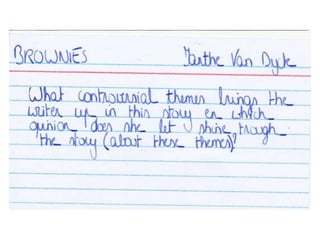 BROWNIES Van Dyck
What controversial themes brings the
writer up in this story en which
opinion does she let shine trough
the story (about these themes)?